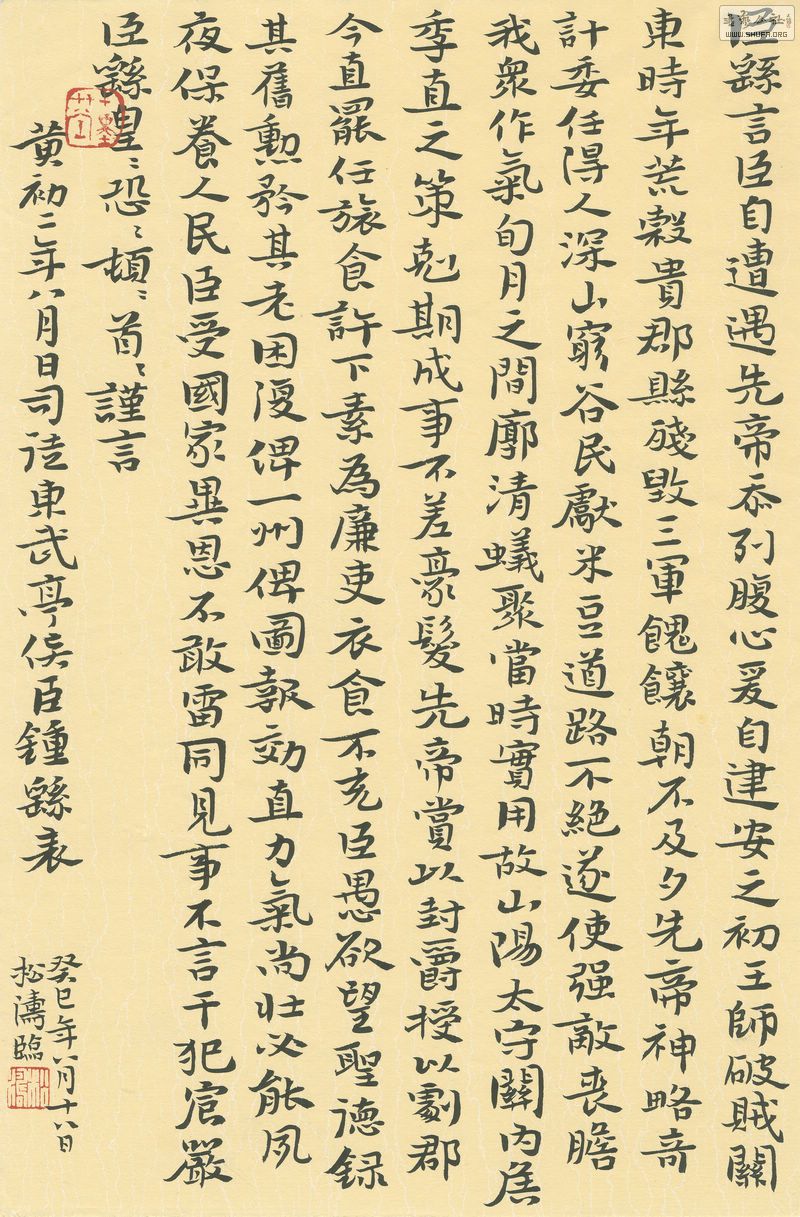 臣繇言臣自遭遇先帝忝列腹心爰自建安之初王師破賊關
東時年荒穀貴郡縣殘毀三軍餽饟朝不及夕先帝神略奇
計委任得人深山窮谷民獻米豆道路不絶遂使强敵喪膽
我衆作氣旬月之間廓清蟻聚當時實用故山陽太守關內侯
季直之策剋期成事不差豪髮先帝賞以封爵授以劇郡
今直罷任旅食許下素為廉吏衣食不充臣愚欲望聖德録
其舊勳矜其老困復俾一州俾圖報効直力氣尚壯必能夙
夜保養人民臣受國家異恩不敢雷同見事不言干犯宸嚴
臣繇皇〻恐〻頓〻首〻謹言
黄初二年八月日司徒東武亭侯臣鍾繇表
癸巳年八月十八日
松濤臨
WWW.SHUFA.ORG